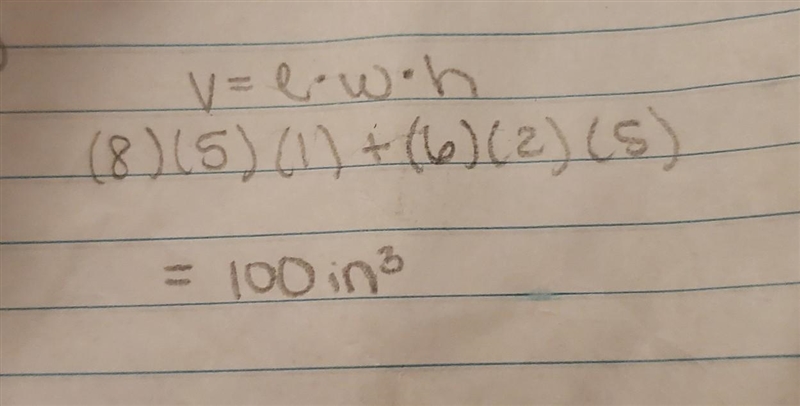 V = l · w · h
(8)(5)(1) + (6)(2)(5)
= 100 in³